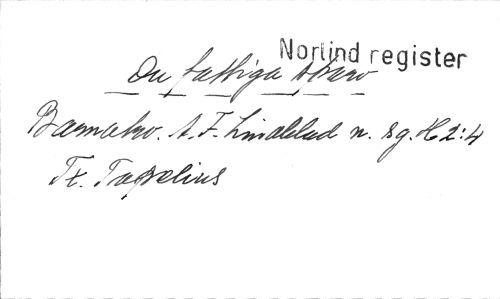 Norlind register
Du fattiga
Barnakv. A. F. Lindblad n. sg. H 2:4
Tx. Topelius